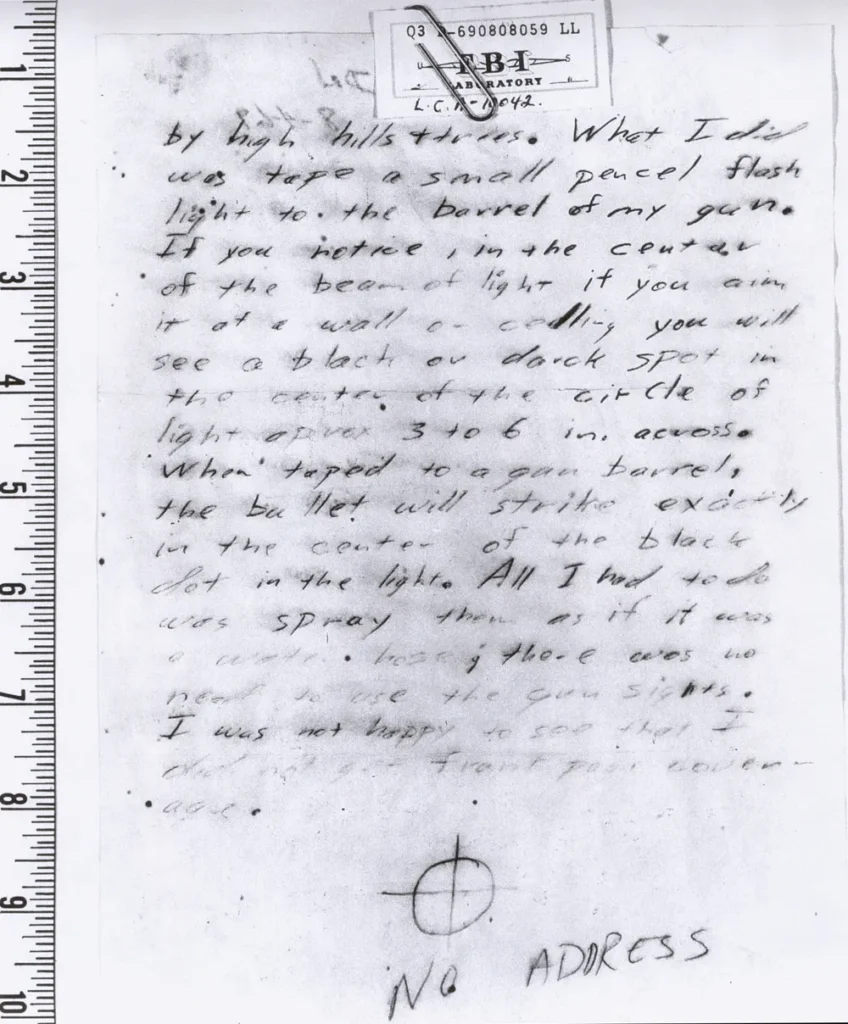 Q3 -690808059 LL
FBI
LABORATORY
L.C. 10042.
by high hills & trees. What I did
was tape a small pencel flash
light to the barrel of my gun.
If you notice, in the center
of the beam of light if you aim
it at a wall or celling you will
see a black or darck spot in
the center of the circle of
light aprox 3 to 6 in. across.
When taped to a gun barrel,
the bullet will strike exactly
in the center of the black
dot in the light. All I had to do
was spray them as if it was
a water hose; there was no
need to use the gun sights.
I was not happy to see that I
did not get front page cover-
age.
NO ADDRESS
1
2
3
4
5
6
7
8
9
10